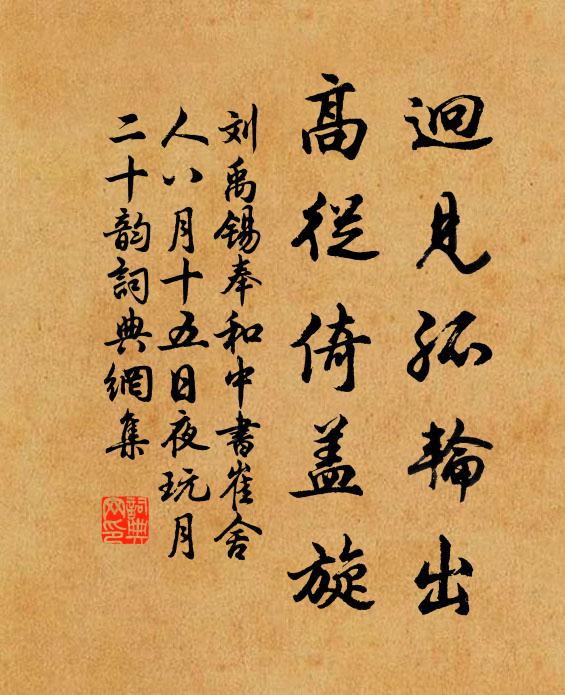 迥見孤輪出
高從倚蓋旋
刘禹锡奉和中書崔舍
人八月十五日夜玩月
二十韵詞典網集
詞典網印